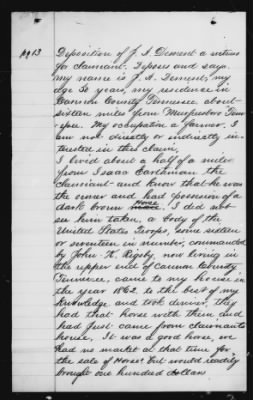 pg 13
Deposition of J. A. Dement a witness
for claimant. Deposes and says.
my name is J. A. Dement, my
age 30 years, my residence in
Cannon County Tennessee about
sixteen miles from Murfreesboro Tenn-
essee. My occupation a farmer, I
am not directly or indirectly in-
terested in this claim,
I lived about a half of a mile
from Isaac Earthman the
claimant and know that he was
the owner and had possession of a
dark brown horse, I did not
see him taken, a body of the
United States Troops, some sixteen
or seventeen in number, commanded
by John H. Rigsby, now living in
the upper end of Cannon County
Tennessee, came to my house in
the year 1862, to the best of my
knowledge and took dinner, they
had that horse with them and
had just came from claimants
house, It was a good horse, we
had no market at that time for
the sale of Horses but would readily
brought one hundred dollars